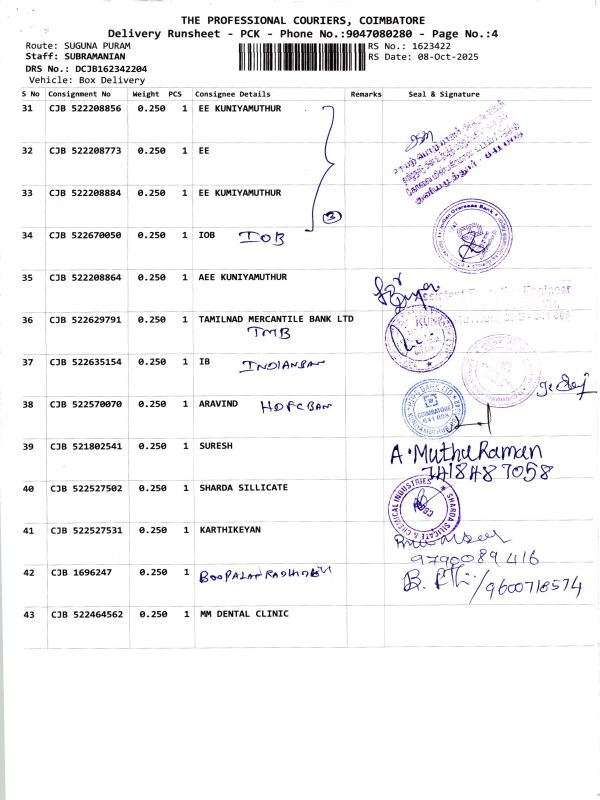 THE PROFESSIONAL COURIERS, COIMBATORE
Delivery Runsheet - PCK - Phone No.:9047080280 - Page No.:4
Route: SUGUNA PURAM
RS No.: 1623422
Staff: SUBRAMANIAN
RS Date: 08-Oct-2025
DRS No.: DCJB162342204
Vehicle: Box Delivery
S No Consignment No Weight PCS Consignee Details Remarks Seal & Signature
31 CJB 522208856 0.250 1 EE KUNIYAMUTHUR
32 CJB 522208773 0.250 1 EE
33 CJB 522208884 0.250 1 EE KUMIYAMUTHUR
3
34 CJB 522670050 0.250 1 IOB IOB
Indian Overseas Bank
35 CJB 522208864 0.250 1 AEE KUNIYAMUTHUR
Engineer
36 CJB 522629791 0.250 1 TAMILNAD MERCANTILE BANK LTD
TMB
37 CJB 522635154 0.250 1 IB INDIANBAN
38 CJB 522570070 0.250 1 ARAVIND HDFCBAN
HDFC BANK LTD
COIMBATORE
641 008
39 CJB 521802541 0.250 1 SURESH A.MuthuRaman
7418487058
40 CJB 522527502 0.250 1 SHARDA SILLICATE
SHARDA SILICATE & CHEMICAL INDUSTRIES
CBE
41 CJB 522527531 0.250 1 KARTHIKEYAN
9790089416
42 CJB 1696247 0.250 1
9600718574
43 CJB 522464562 0.250 1 MM DENTAL CLINIC